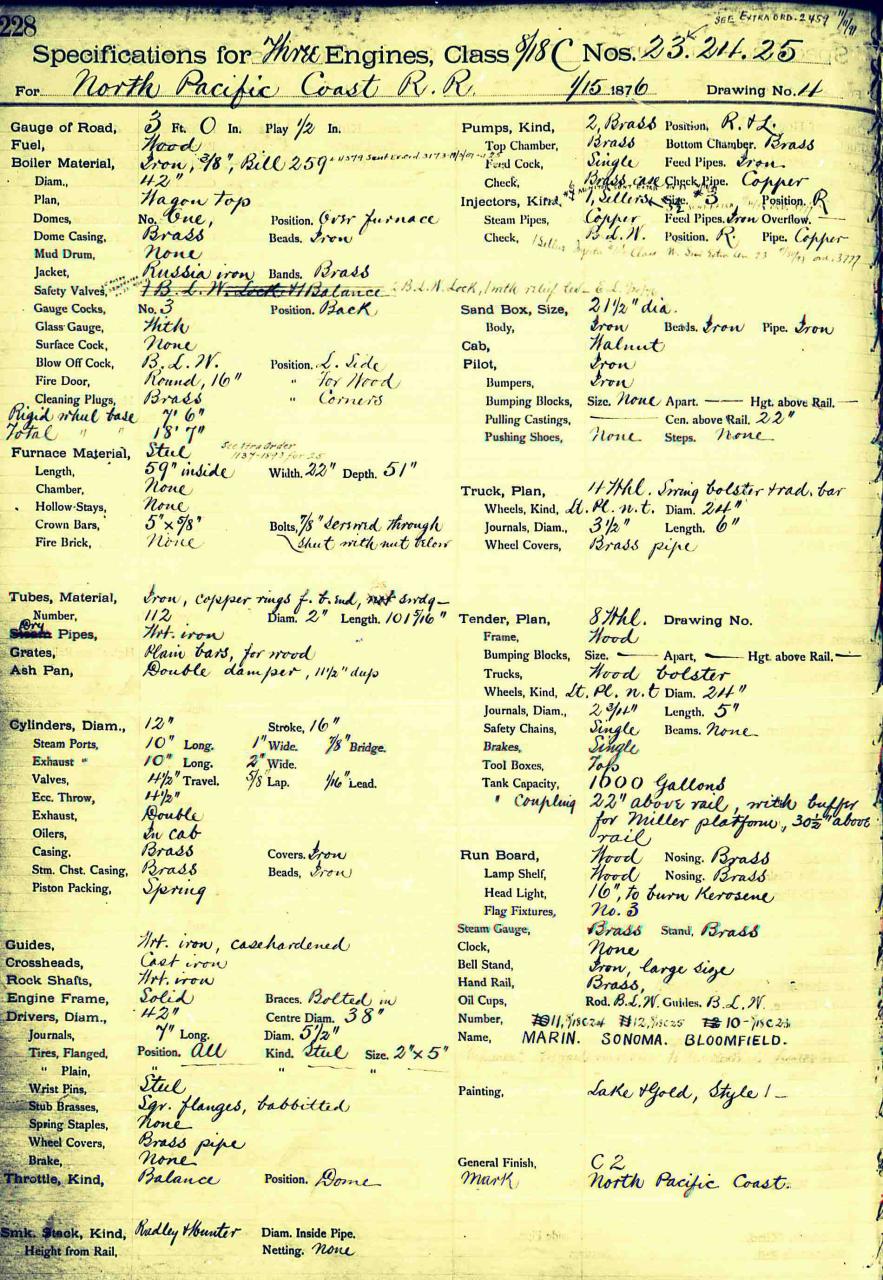 228
SEE EXTRA ORD. 2459
Specifications for Three Engines, Class 8/18 C Nos. 23. 24. 25
For North Pacific Coast R. R. 1/15 1876 Drawing No. 4
Gauge of Road, 3 Ft. 0 In. Play 1/2 In.
Fuel, Wood
Boiler Material, Iron, 3/8", Bill 259
Diam., 42"
Plan, Wagon top
Domes, No. One, Position. Over furnace
Dome Casing, Brass Beads. Iron
Mud Drum, None
Jacket, Russia iron Bands. Brass
Safety Valves, 1 B. L. W. Lock & 1 Balance
Gauge Cocks, No. 3 Position. Back
Glass Gauge, With
Surface Cock, None
Blow Off Cock, B. L. W. Position. L. Side
Fire Door, Round, 16" " For Wood
Cleaning Plugs, Brass " Corners
Rigid wheel base 7' 6"
Total " " 18' 7"
Furnace Material, Steel
Length, 59" inside Width. 22" Depth. 51"
Chamber, None
Hollow-Stays, None
Crown Bars, 5" x 5/8" Bolts, 7/8" screwed through
Fire Brick, None sheet with nut below
Tubes, Material, Iron, copper rings f. b. end, not swdg
Number, 112 Diam. 2" Length. 101 5/16"
Dry
Steam Pipes, Wrt. iron
Grates, Plain bars, for wood
Ash Pan, Double damper, 11 1/2" deep
Cylinders, Diam., 12" Stroke, 16"
Steam Ports, 10" Long. 1" Wide. 7/8" Bridge.
Exhaust " 10" Long. 2" Wide.
Valves, 4 1/2" Travel. 5/8" Lap. 1/16" Lead.
Ecc. Throw, 4 1/2"
Exhaust, Double
Oilers, In cab
Casing, Brass Covers. Iron
Stm. Chst. Casing, Brass Beads, Iron
Piston Packing, Spring
Guides, Wrt. iron, casehardened
Crossheads, Cast iron
Rock Shafts, Wrt. iron
Engine Frame, Solid Braces. Bolted in
Drivers, Diam., 42" Centre Diam. 38"
Journals, 7" Long. Diam. 5 1/2"
Tires, Flanged, Position. All Kind. Steel Size. 2" x 5"
" Plain, " " "
Wrist Pins, Steel
Stub Brasses, Sqr. flanges, babbitted
Spring Staples, None
Wheel Covers, Brass pipe
Brake, None
Throttle, Kind, Balance Position. Dome
Smk. Stack, Kind, Radley & Hunter Diam. Inside Pipe.
Height from Rail, Netting. None
Pumps, Kind, 2, Brass Position, R. & L.
Top Chamber, Brass Bottom Chamber. Brass
Feed Cock, Single Feed Pipes. Iron
Check, Brass case Check Pipe. Copper
Injectors, Kind, 1, Sellers Size. #3 Position. R
Steam Pipes, Copper Feed Pipes. Iron Overflow. —
Check, B. L. W. Position. R. Pipe. Copper
Sand Box, Size, 21 1/2" dia.
Body, Iron Beads. Iron Pipe. Iron
Cab, Walnut
Pilot, Iron
Bumpers, Iron
Bumping Blocks, Size. None Apart. — Hgt. above Rail. —
Pulling Castings, — Cen. above Rail. 22"
Pushing Shoes, None Steps. None
Truck, Plan, 4 Whl. Swing bolster & rad. bar
Wheels, Kind, Lt. Pl. n. t. Diam. 24"
Journals, Diam., 3 1/2" Length. 6"
Wheel Covers, Brass pipe
Tender, Plan, 8 Whl. Drawing No.
Frame, Wood
Bumping Blocks, Size. — Apart, — Hgt. above Rail. —
Trucks, Wood bolster
Wheels, Kind, Lt. Pl. n. t Diam. 24"
Journals, Diam., 2 3/4" Length. 5"
Safety Chains, Single Beams. None
Brakes, Single
Tool Boxes, Top
Tank Capacity, 1000 Gallons
" Coupling 22" above rail, with buffer
for Miller platform, 30 1/2" above
rail
Run Board, Wood Nosing. Brass
Lamp Shelf, Wood Nosing. Brass
Head Light, 16", to burn Kerosene
Flag Fixtures, No. 3
Steam Gauge, Brass Stand, Brass
Clock, None
Bell Stand, Iron, large size
Hand Rail, Brass,
Oil Cups, Rod. B. L. W. Guides. B. L. W.
Number, 11, 8/18C24 12, 8/18C25 10 - 8/18C23
Name, MARIN. SONOMA. BLOOMFIELD.
Painting, Lake & Gold, Style 1
General Finish, C 2
Mark North Pacific Coast.